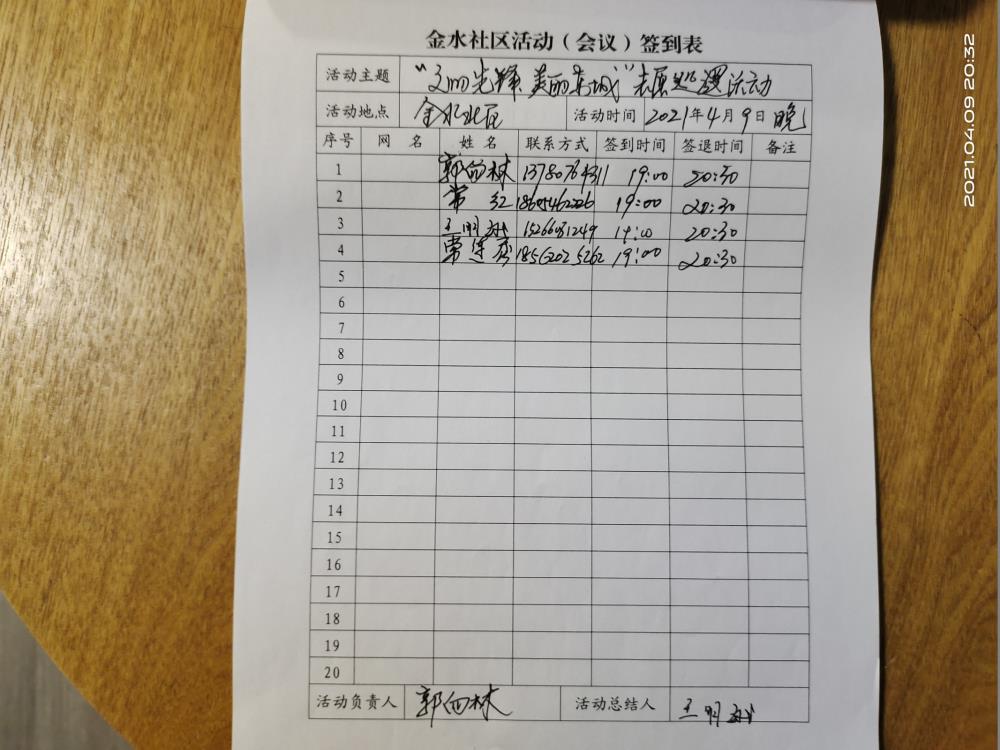 金水社区活动（会议）签到表
活动主题 “文明先锋 美丽东城” 志愿巡逻活动
活动地点 金水社区 活动时间 2021年4月9日晚
序号 网 名 姓 名 联系方式 签到时间 签退时间 备注
1 13780764311 19:00 20:30
2 常红 19:00 20:30
3 15266031249 19:00 20:30
4 18562025262 19:00 20:30
5
6
7
8
9
10
11
12
13
14
15
16
17
18
19
20
活动负责人 活动总结人
2021.04.09 20:32